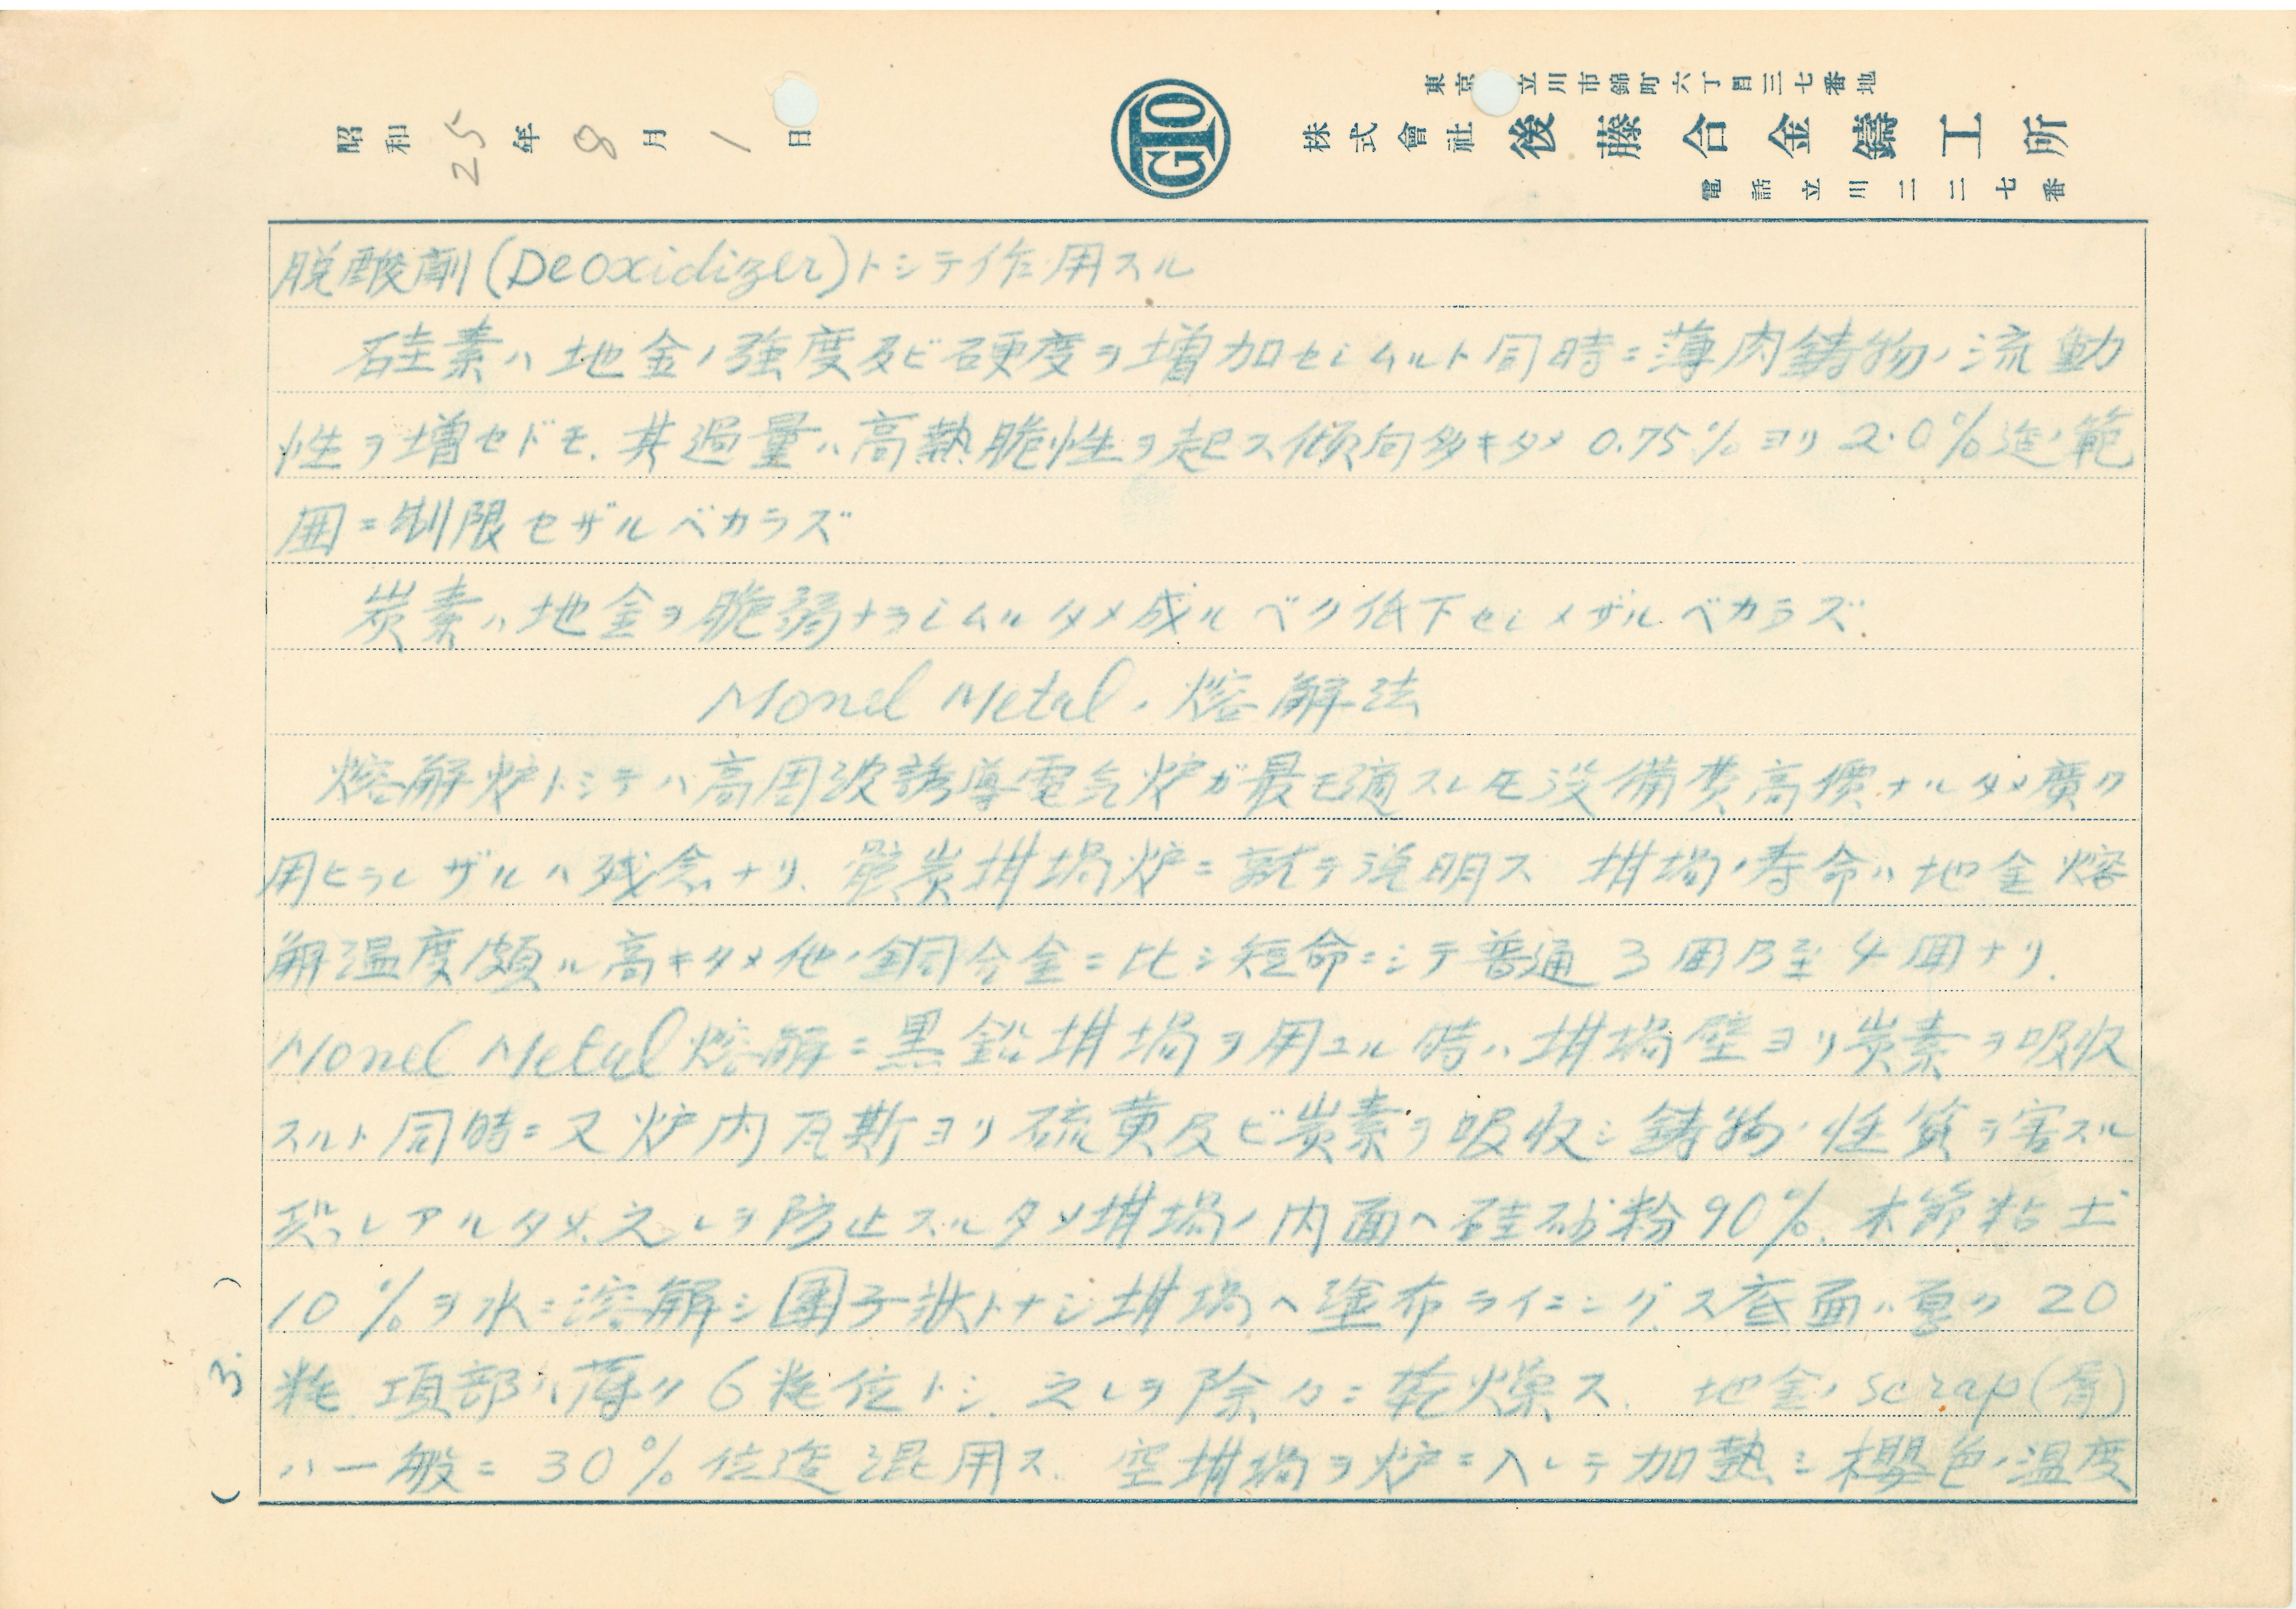 東京 立川市錦町六丁目三七番地
株式會社 後藤合金鑄工所
電話立川二二七番
昭和25年8月1日
GTO
脱酸劑(Deoxidizer)トシテ作用スル
硅素ハ地金ノ強度及ビ硬度ヲ増加セシムルト同時ニ薄肉鋳物ノ流動
性ヲ増セドモ、其過量ハ高熱脆性ヲ起ス傾向多キタメ 0.75%ヨリ 2.0%迄ノ範
囲ニ制限セザルベカラズ
炭素ハ地金ヲ脆弱ナラシムルタメ成ルベク低下セシメザルベカラズ.
Monel Metalノ熔解法
熔解炉トシテハ高周波誘導電気炉ガ最モ適スレモ設備費高價ナルタメ廣ク
用ヒラレザルハ残念ナリ、骸炭坩堝炉ニ就テ説明ス 坩堝ノ寿命ハ地金熔
解温度頗ル高キタメ他ノ銅合金ニ比シ短命ニシテ普通 3回乃至4回ナリ.
Monel Metal熔解ニ黒鉛坩堝ヲ用ユル時ハ坩堝壁ヨリ炭素ヲ吸収
スルト同時ニ又炉内瓦斯ヨリ硫黄及ビ炭素ヲ吸収シ鋳物ノ性質ヲ害スル
恐レアルタメ、之レヲ防止スルタメ坩堝ノ内面ヘ硅砂粉90%、木節粘土
10%ヲ水ニ溶解シ團子状トナシ坩堝ヘ塗布ライニングス底面ハ厚ク 20
粍 頂部ハ薄ク 6粍位トシ、之レヲ除々ニ乾燥ス. 地金ノscrap(屑)
ハ一般ニ 30%位迄混用ス. 空坩堝ヲ炉ニ入レテ加熱シ櫻色ノ温度
( 3. )